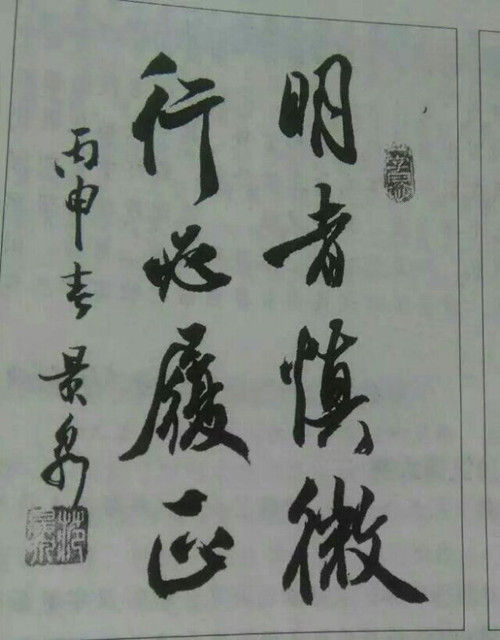 明者慎微
行必履正
丙申春 景泉